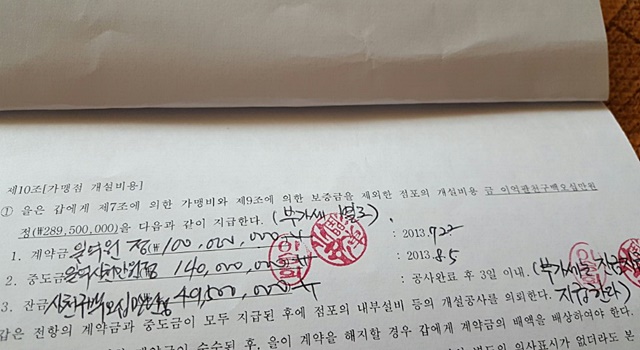 제10조[가맹점 개설비용]
① 을은 갑에게 제7조에 의한 가맹비와 제9조에 의한 보증금을 제외한 점포의 개설비용 금 이억팔천구백오십만원
정(₩289,500,000)을 다음과 같이 지급한다. (부가세 별도)
1. 계약금 일억원 정(₩100,000,000 : 2013. 7.22
2. 중도금 일억사천만원정 140,000,000 : 2013. 8.5
3. 잔금 사천구백오십만원정 49,500,000 : 공사완료 후 3일 이내. (부가세는
갑은 전항의 계약금과 중도금이 모두 지급된 후에 점포의 내부설비 등의 개설공사를 의뢰한다. 지급한다)
후, 을이 계약을 해지할 경우 갑에게 계약금의 배액을 배상하여야 한다.
별도의 의사표시가 없더라도 본